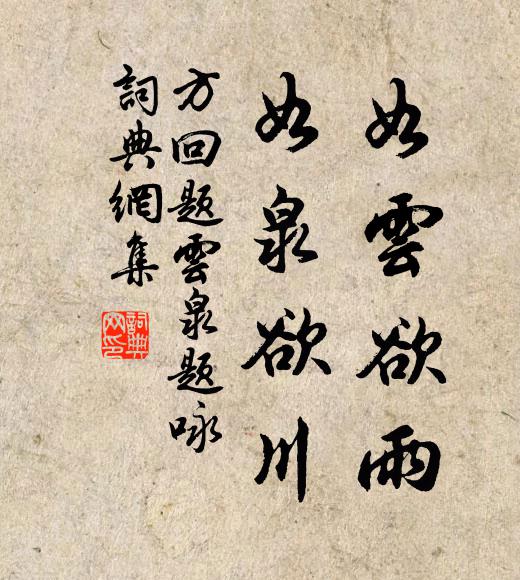 如雲欲雨
如泉欲川
方回題雲泉題咏
詞典網集
詞典
网印